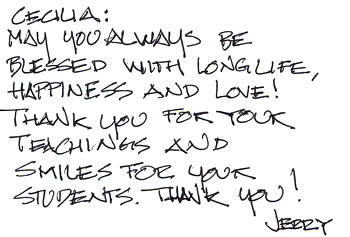 CECILIA:
MAY YOU ALWAYS BE
BLESSED WITH LONG LIFE,
HAPPINESS AND LOVE!
THANK YOU FOR YOUR
TEACHINGS AND
SMILES FOR YOUR
STUDENTS. THANK YOU!
JERRY